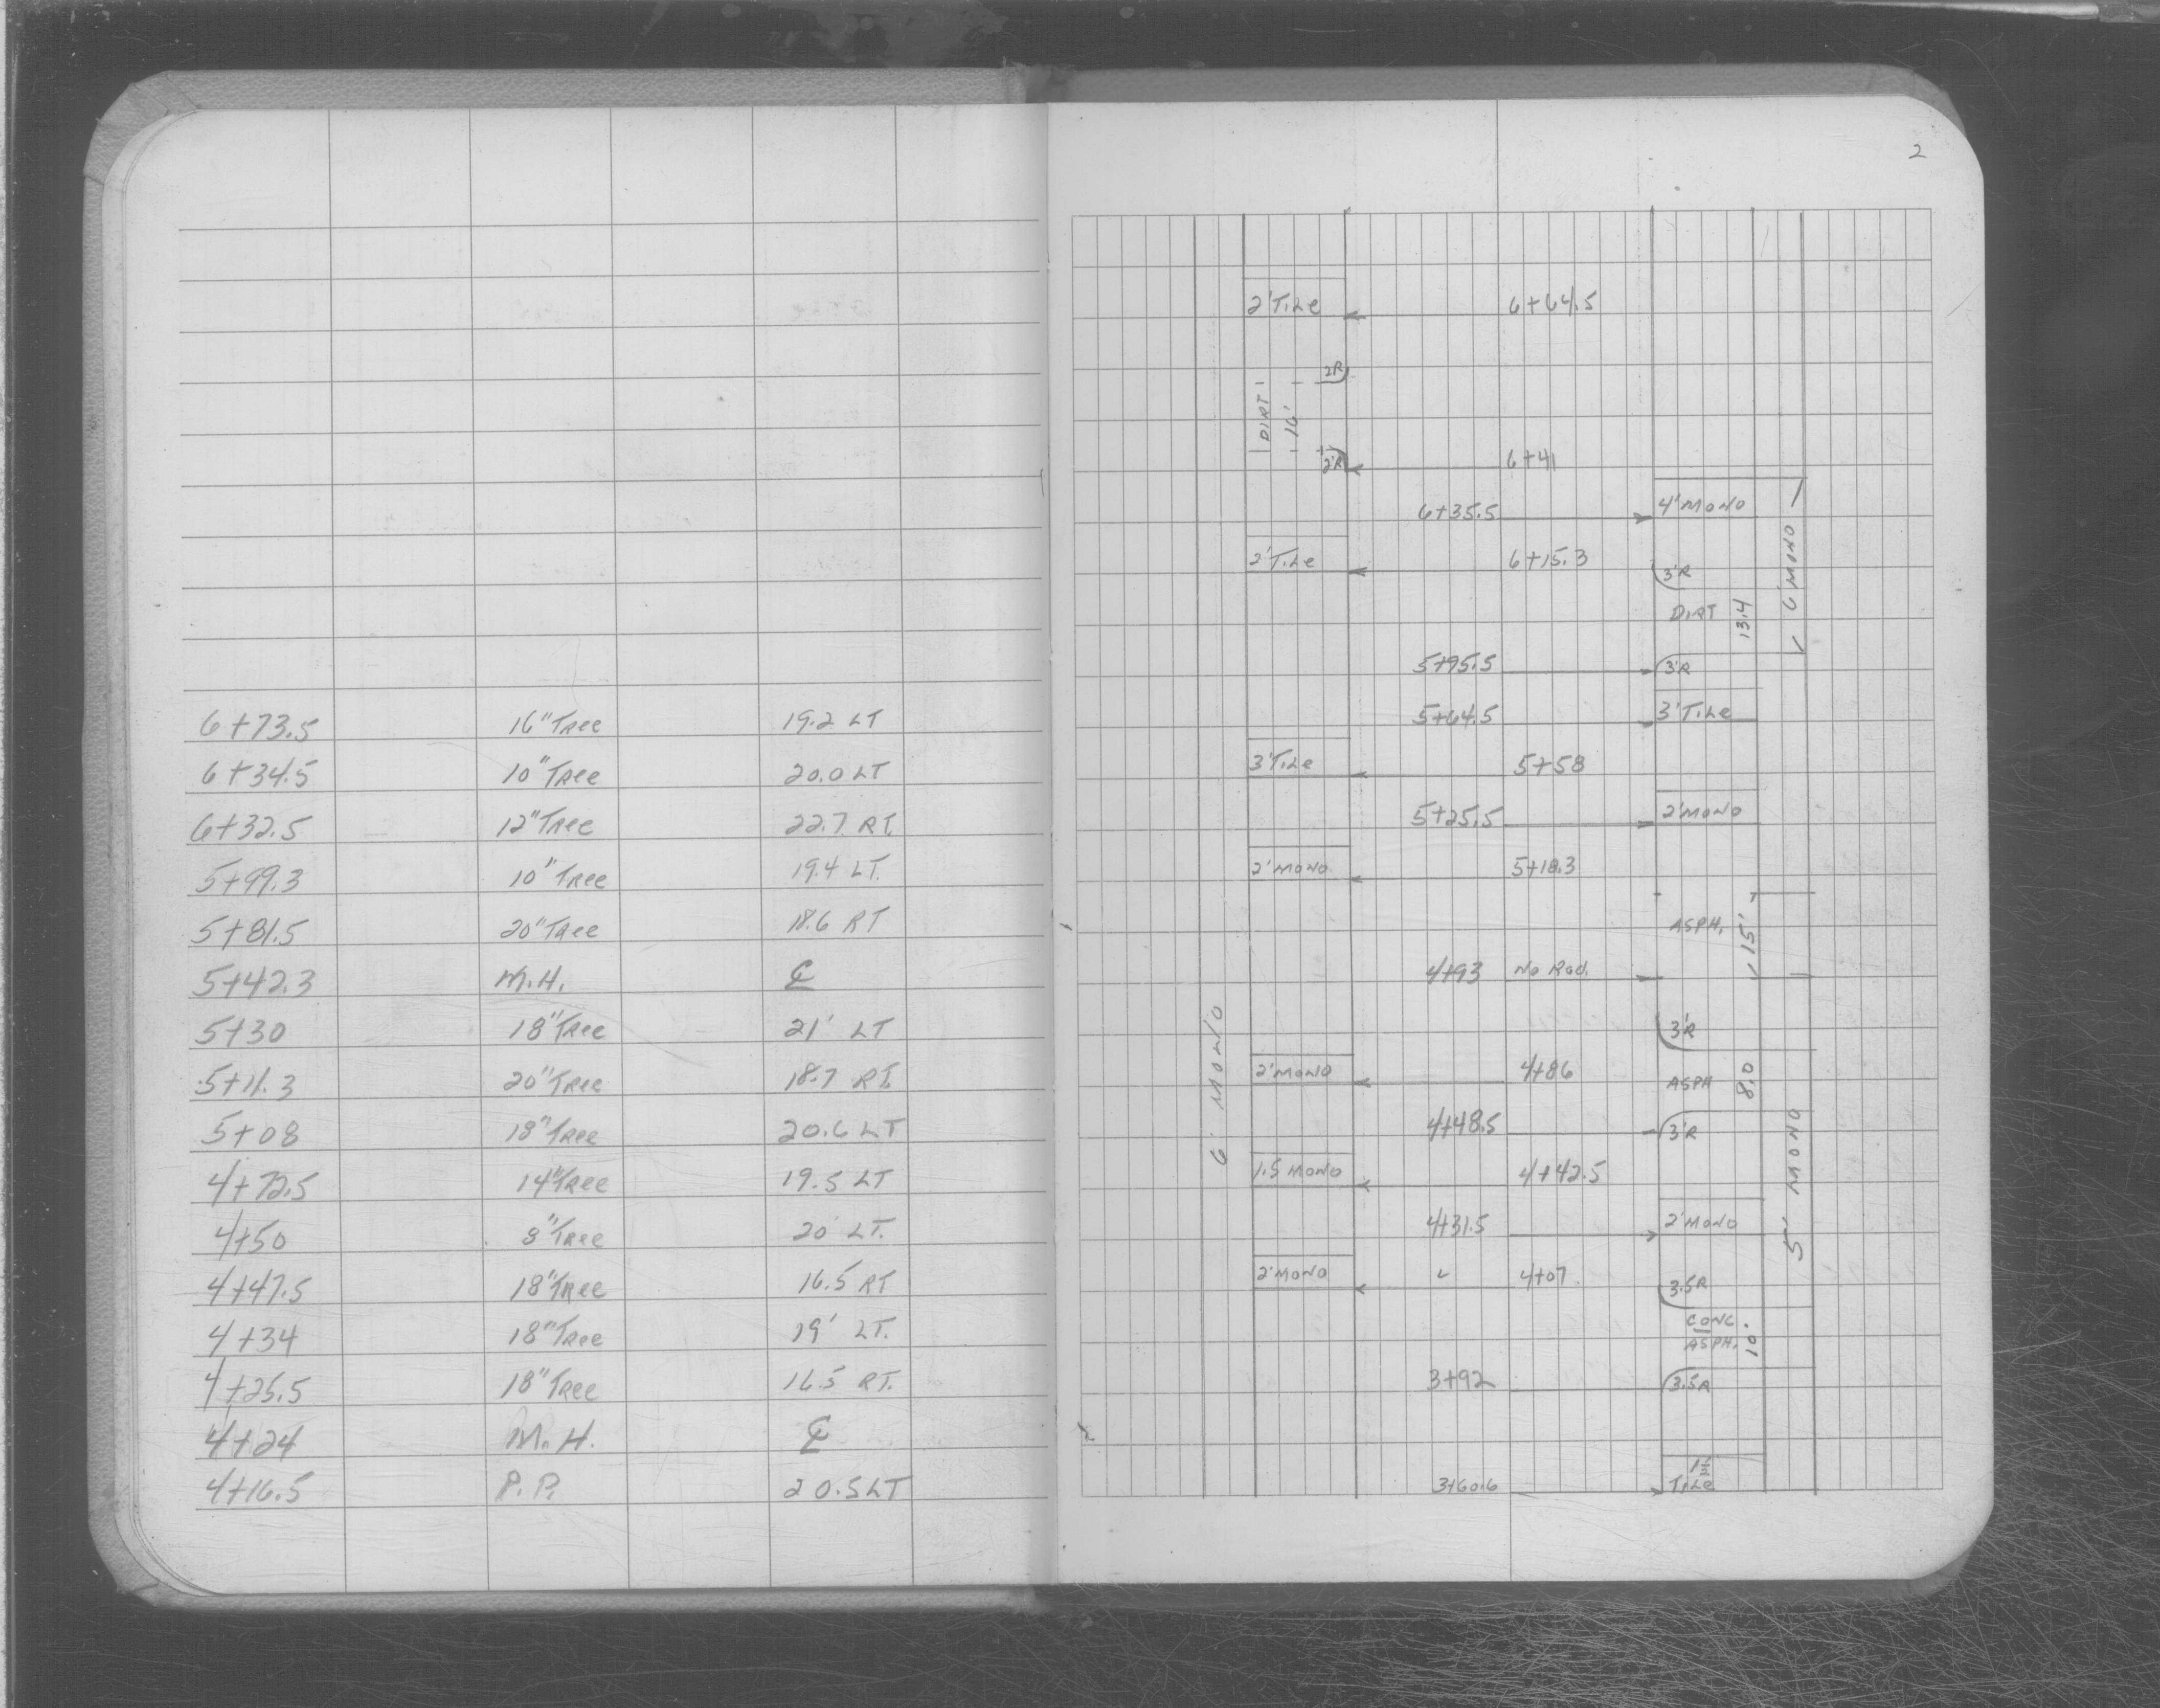 6+73.5 16" Tree 19.2 LT
6+34.5 10" Tree 20.0 LT
6+32.5 12" Tree 22.7 RT.
5+99.3 10" Tree 19.4 LT.
5+81.5 20" Tree 18.6 RT
5+42.3 M.H. ℄
5+30 18" Tree 21' LT
5+11.3 20" Tree 18.7 RT.
5+08 18" Tree 20.6 LT
4+72.5 14" Tree 19.5 LT
4+50 8" Tree 20' LT.
4+47.5 18" Tree 16.5 RT
4+34 18" Tree 19' LT.
4+25.5 18" Tree 16.5 RT.
4+24 M.H. ℄
4+16.5 P.P. 20.5 LT
2
2' Tile 6+64.5
2R
DIRT 16'
2'R 6+41
6+35.5 4' MONO
2' Tile 6+15.3 3'R
DIRT 13.4 6' MONO
5+95.5 3'R
5+64.5 3' Tile
3' Tile 5+58
5+25.5 2' MONO
2' MONO 5+18.3
ASPH. 15'
4+93 No Rad.
6' MONO
3'R
2' MONO 4+86 ASPH 8.0
4+48.5 3'R
1.5 MONO 4+42.5
5' MONO
4+31.5 2' MONO
2' MONO 4+07 3.5R
CONC
ASPH. 10'
3+92 3.5R
3+60.6 Tile